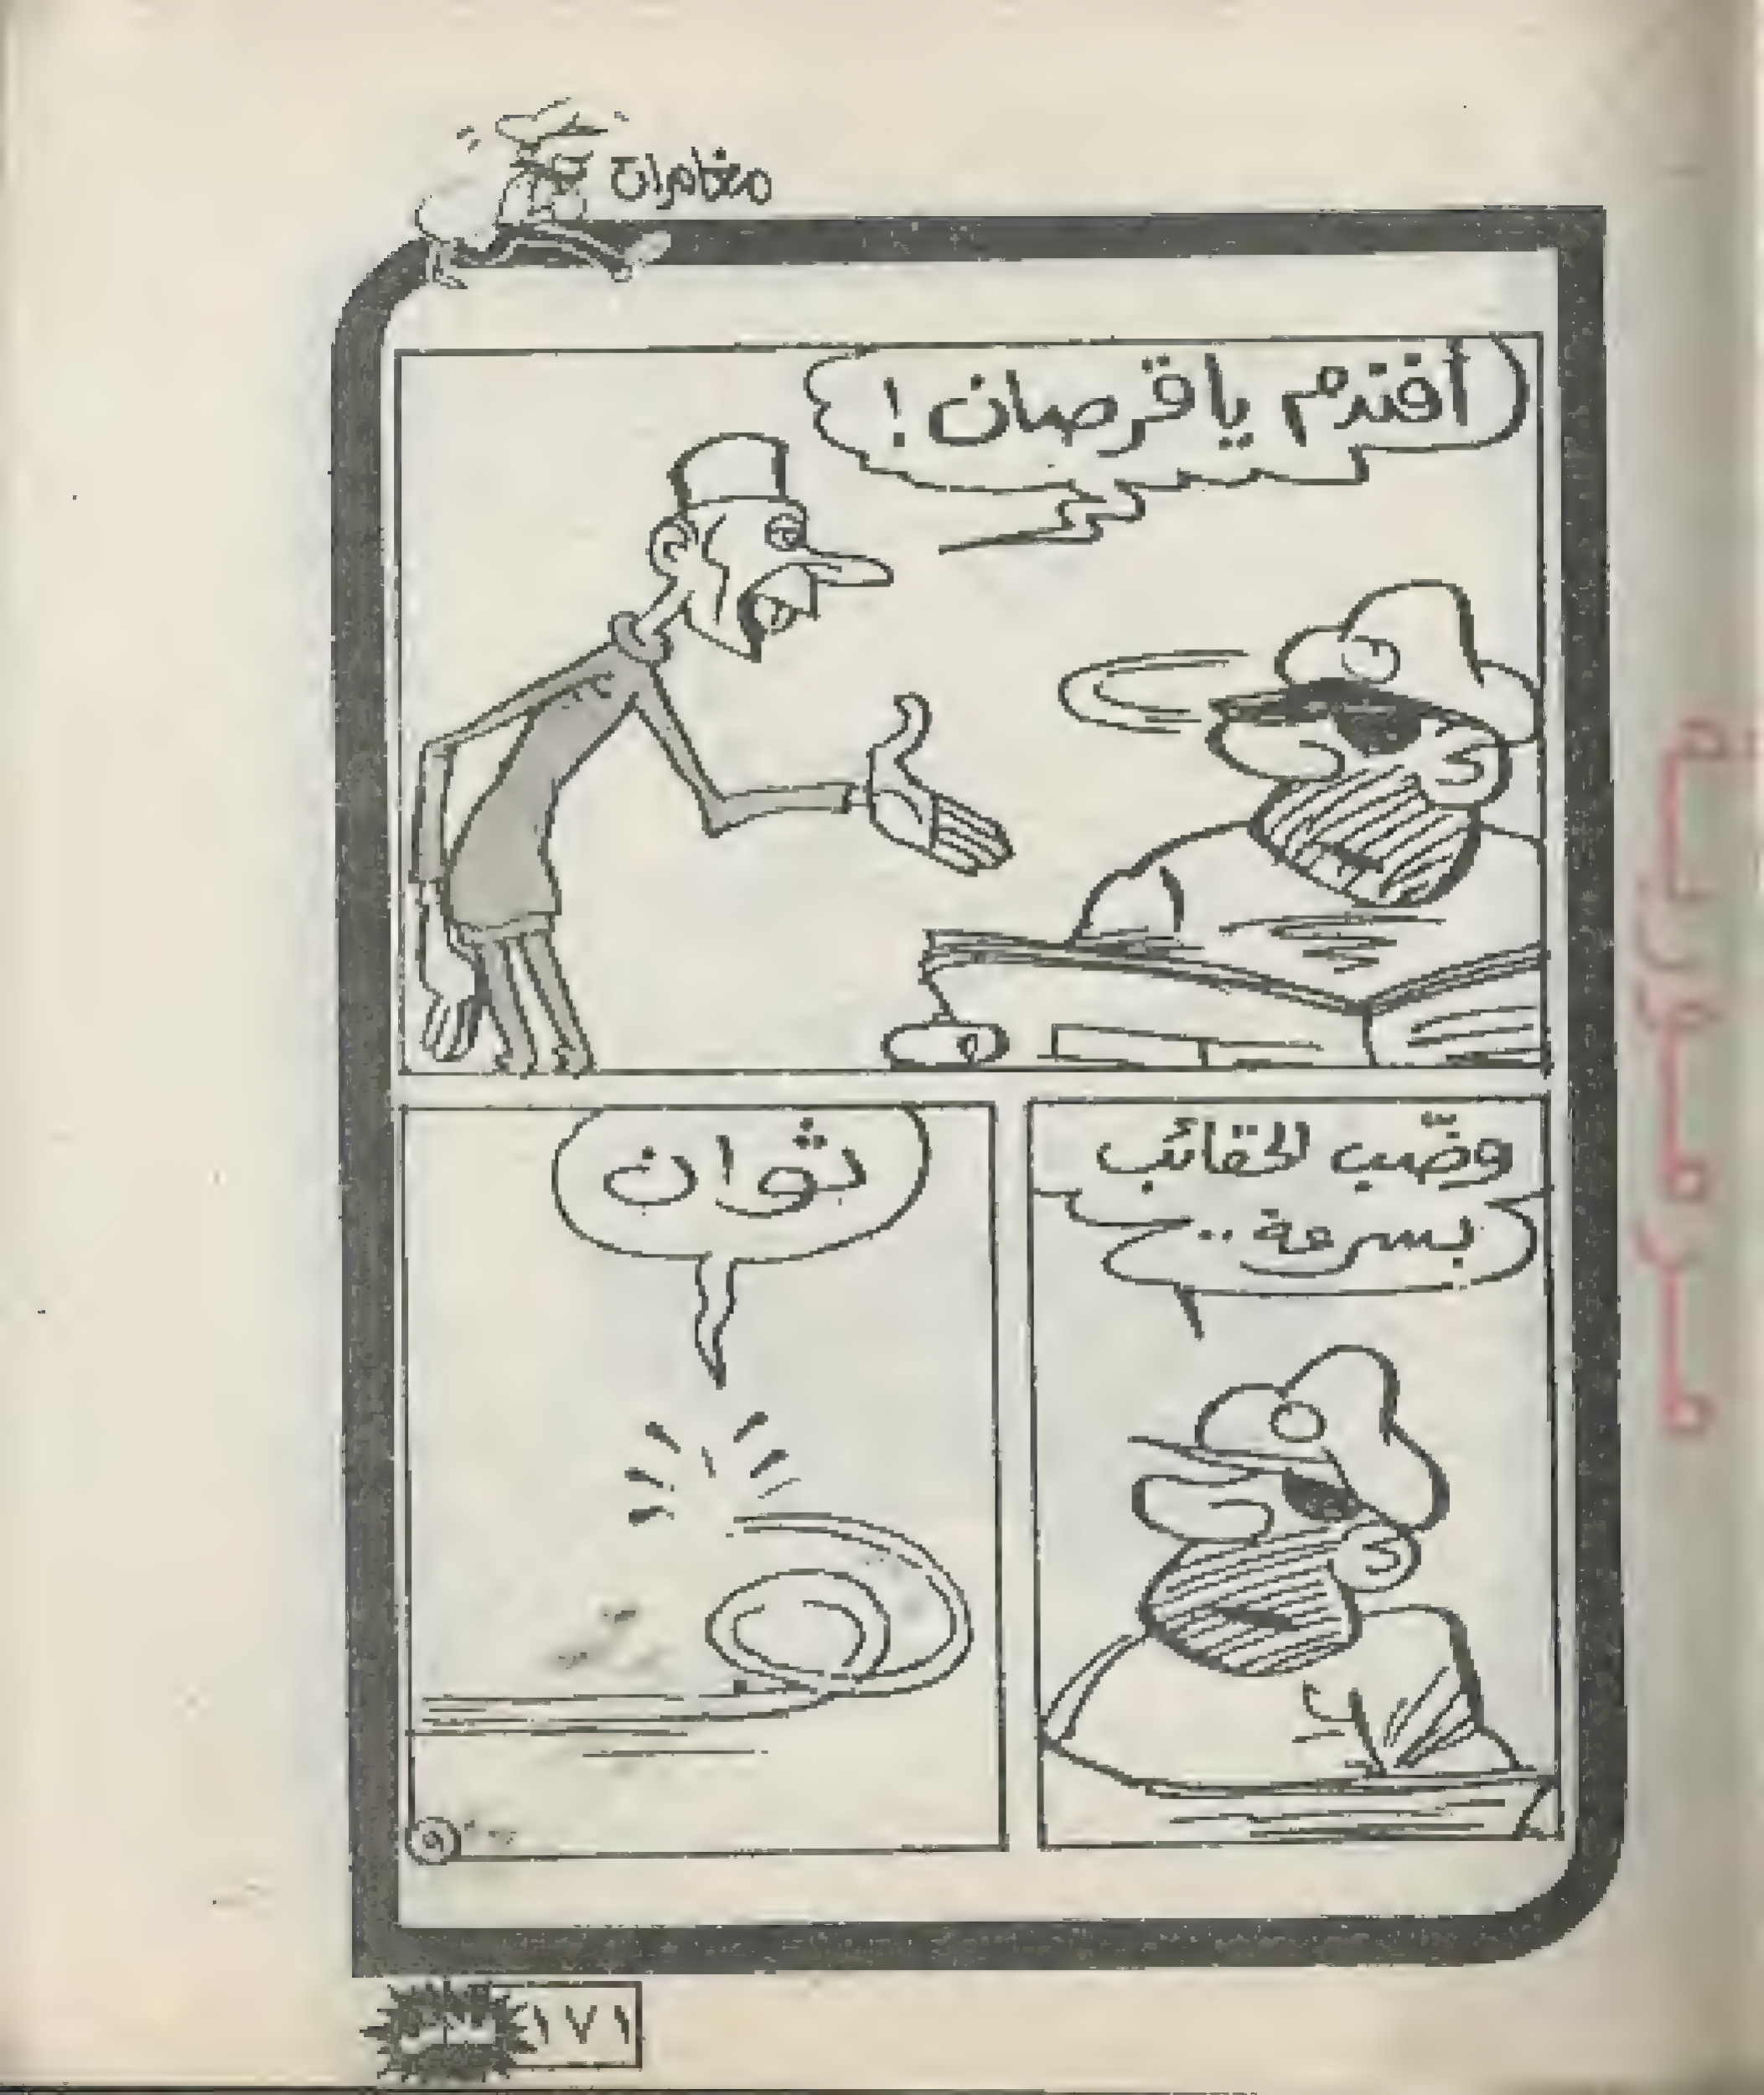 مغامرات
أفندم يا قرصان !
وضّب الحقائب
بسرعة ..
ثوان
٩
١٧١